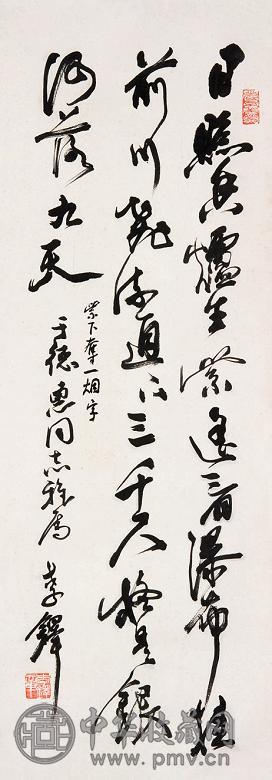 日照香爐生紫遥看瀑布掛
前川飛流直下三千尺疑是銀
河落九天
紫下奪一烟字
于德惠同志雅属 李鐸
中华收藏网
www.pmv.cn